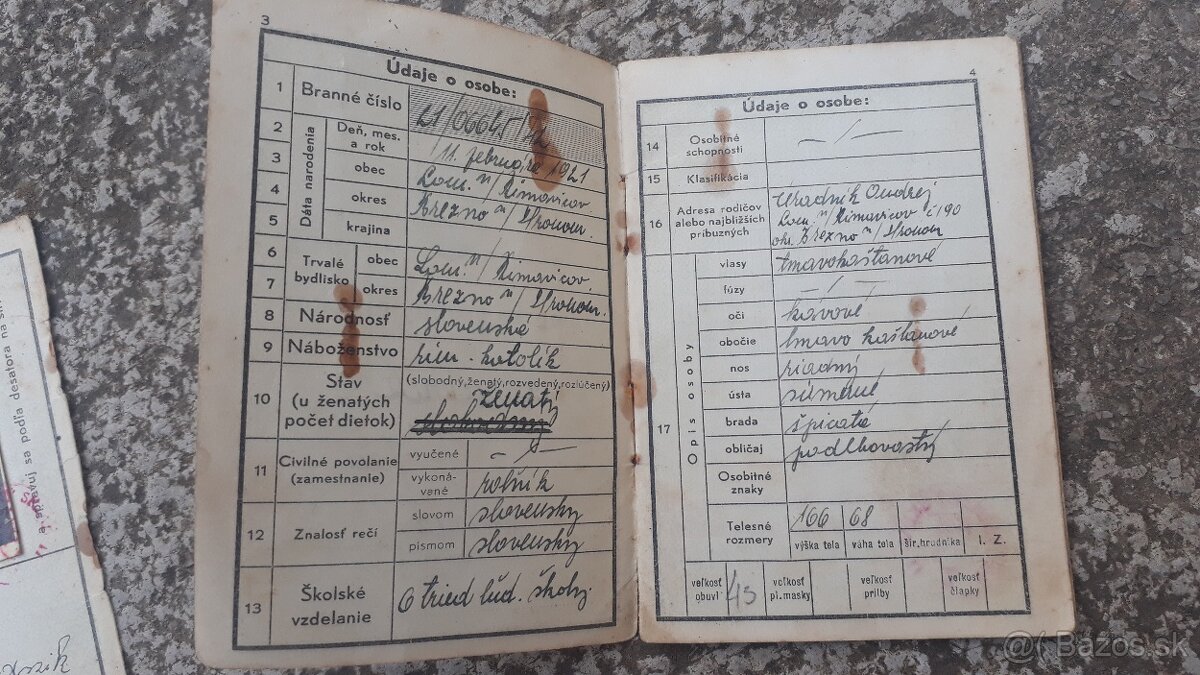 3
Údaje o osobe:
1 Branné číslo 21/0664.5/42
Dáta narodenia
2 Deň, mes. a rok 11. februára 1921
3 obec Lom n/Rimavicov.
4 okres Brezno n/Hronom.
5 krajina
Trvalé bydlisko
6 obec Lom. n/Rimavicov.
7 okres Brezno n/Hronom.
8 Národnosť slovenská
9 Náboženstvo rím. - katolík
10 Stav (u ženatých počet dietok) (slobodný, ženatý, rozvedený, rozlúčený)
ženatý
slobodný
11 Civilné povolanie (zamestnanie)
vyučené — / —
vykonávané roľník
12 Znalosť rečí
slovom slovensky
písmom slovensky
13 Školské vzdelanie 6 tried ľud. školy.
4
Údaje o osobe:
14 Osobitné schopnosti — / —
15 Klasifikácia
16 Adresa rodičov alebo najbližších príbuzných
Úradník Ondrej
Lom. n/Rimavicov č 190
okr. Brezno n/Hronom
17 Opis osoby
vlasy tmavokaštanové
fúzy — / —
oči kávové
obočie tmavo kaštanové
nos riadny
ústa súmerné
brada špicatá
obličaj podlhovastý
Osobitné znaky
Telesné rozmery
166 68
výška tela váha tela šír. hrudníka I. Z.
veľkosť obuvi 43 veľkosť pl. masky veľkosť prilby veľkosť čiapky
a spravuj sa podľa desatora na
@( Bazos.sk